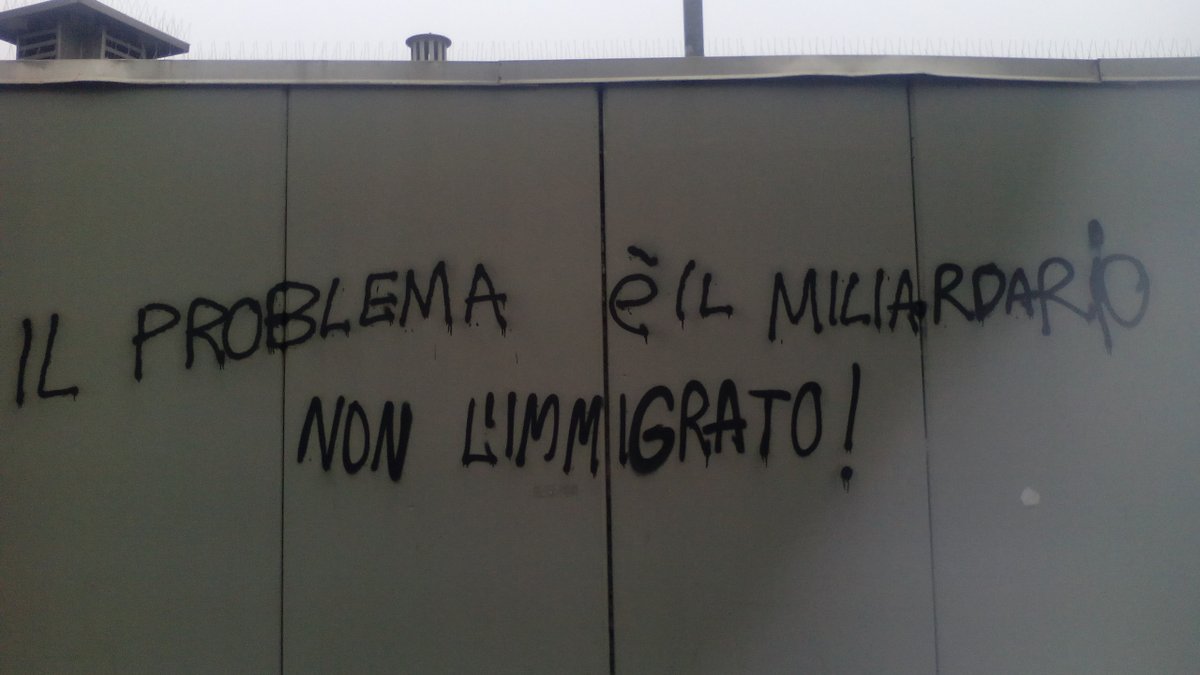 IL PROBLEMA è IL MILIARDARIO
NON L'IMMIGRATO!